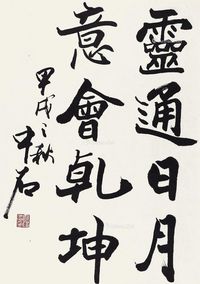 靈通日月
意會乾坤
甲戌之秋